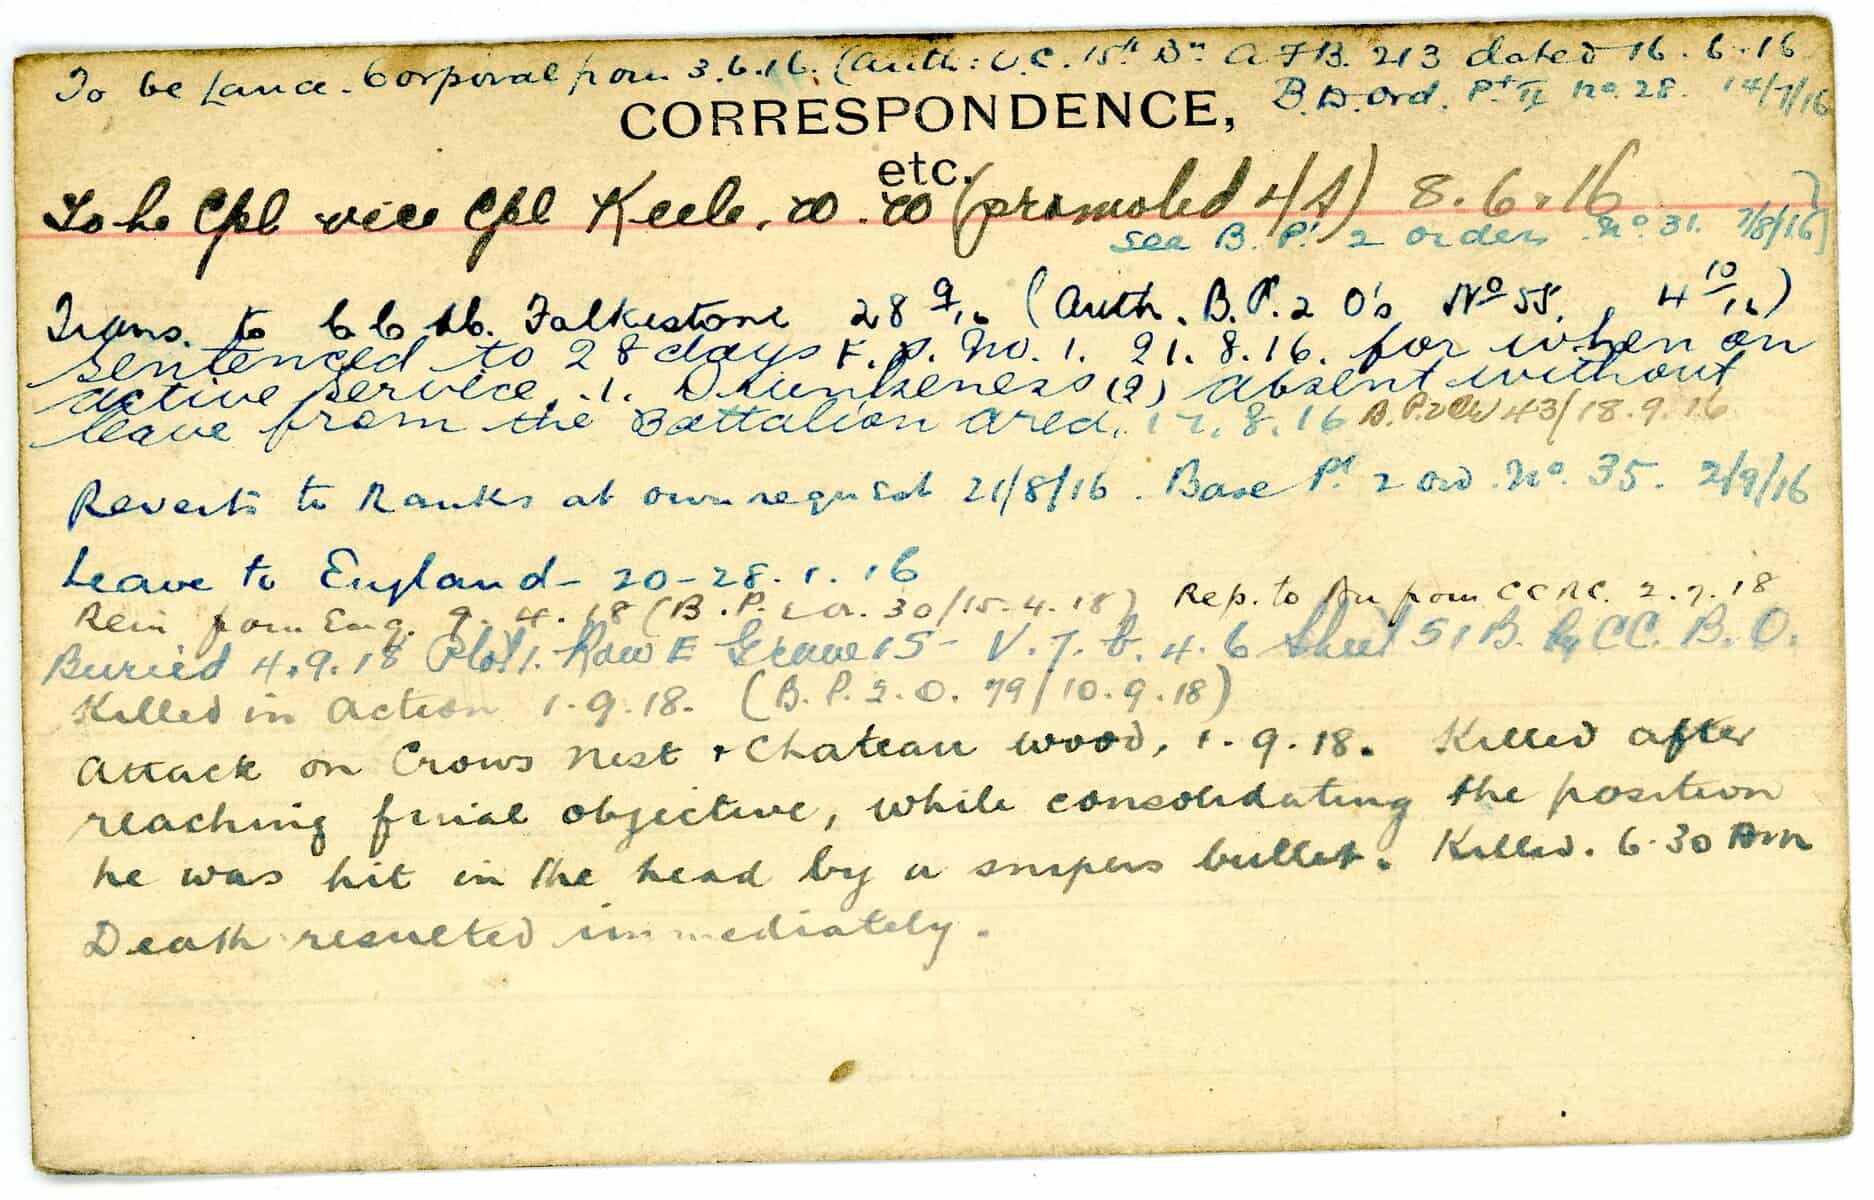 To be Lance-Corporal from 3.6.16. (Auth: O.C. 15th Bn A F B. 213 dated 16.6.16
B.D. Ord. Pt II No. 28. 14/7/16
CORRESPONDENCE,
etc.
To be Cpl vice Cpl Keele, W.W (promoted L/S) 8.6.16
see B. Pt 2 orders No. 31. 7/8/16
Trans. to Folkestone 28 9/16 (Auth. B.P. 2 O's No 55. 4 10/16)
Sentenced to 28 days F.P. No. 1. 21.8.16. for when on
active service .1. Drunkeness (2) absent without
leave from the Battalion area, 17.8.16 B.P.2 O 43/18.9.16
Reverts to Ranks at own request 21/8/16. Base Pt 2 ord. No. 35. 2/9/16
Leave to England - 20-28.1.16
Rein from Eng. 9.4.18 (B.P.2 or. 30/15.4.18) Rep. to Bn from CCRC. 2.7.18
Buried 4.9.18 Plot 1. Row E Grave 15 - V.7.b.4.6 Sheet 51B. by CC. B.O.
Killed in Action 1.9.18. (B.P.2.O. 79/10.9.18)
Attack on Crows Nest + Chateau wood, 1.9.18. Killed after
reaching final objective, while consolidating the position
he was hit in the head by a snipers bullet. Killed. 6.30 Am
Death resulted immediately.